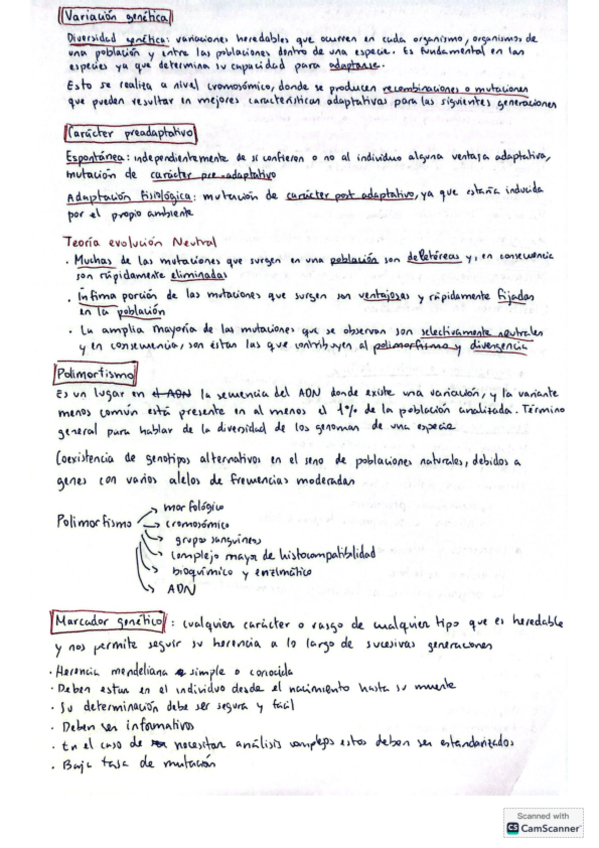 Variación genética
Diversidad genética: variaciones heredables que ocurren en cada organismo, organismos de
una población y entre las poblaciones dentro de una especie. Es fundamental en las
especies ya que determina su capacidad para adaptarse.
Esto se realiza a nivel cromosómico, donde se producen recombinaciones o mutaciones
que pueden resultar en mejores características adaptativas para las siguientes generaciones
Carácter preadaptativo
Espontánea: independientemente de si confieren o no al individuo alguna ventaja adaptativa,
mutación de carácter pre-adaptativo
Adaptación fisiológica: mutación de carácter post adaptativo, ya que estaría inducida
por el propio ambiente
Teoría evolución Neutral
· Muchas de las mutaciones que surgen en una población son deletéreas y, en consecuencia
son rápidamente eliminadas
· Ínfima porción de las mutaciones que surgen son ventajosas y rápidamente fijadas
en la población
· La amplia mayoría de las mutaciones que se observan son selectivamente neutrales
y en consecuencia, son éstas las que contribuyen al polimorfismo y divergencia
Polimorfismo
Es un lugar en el ADN la secuencia del ADN donde existe una variación, y la variante
menos común está presente en al menos el 1% de la población analizada. Término
general para hablar de la diversidad de los genomas de una especie
Coexistencia de genotipos alternativos en el seno de poblaciones naturales, debidos a
genes con varios alelos de frecuencias moderadas
Polimorfismo
morfológico
cromosómico
grupos sanguíneos
complejo mayor de histocompatibilidad
bioquímico y enzimático
ADN
Marcador genético: cualquier carácter o rasgo de cualquier tipo que es heredable
y nos permite seguir su herencia a lo largo de sucesivas generaciones
· Herencia mendeliana simple o conocida
· Deben estar en el individuo desde el nacimiento hasta su muerte
· Su determinación debe ser segura y fácil
· Deben ser informativos
· En el caso de necesitar análisis complejos estos deben ser estandarizados
· Baja tasa de mutación
Scanned with
CS CamScanner